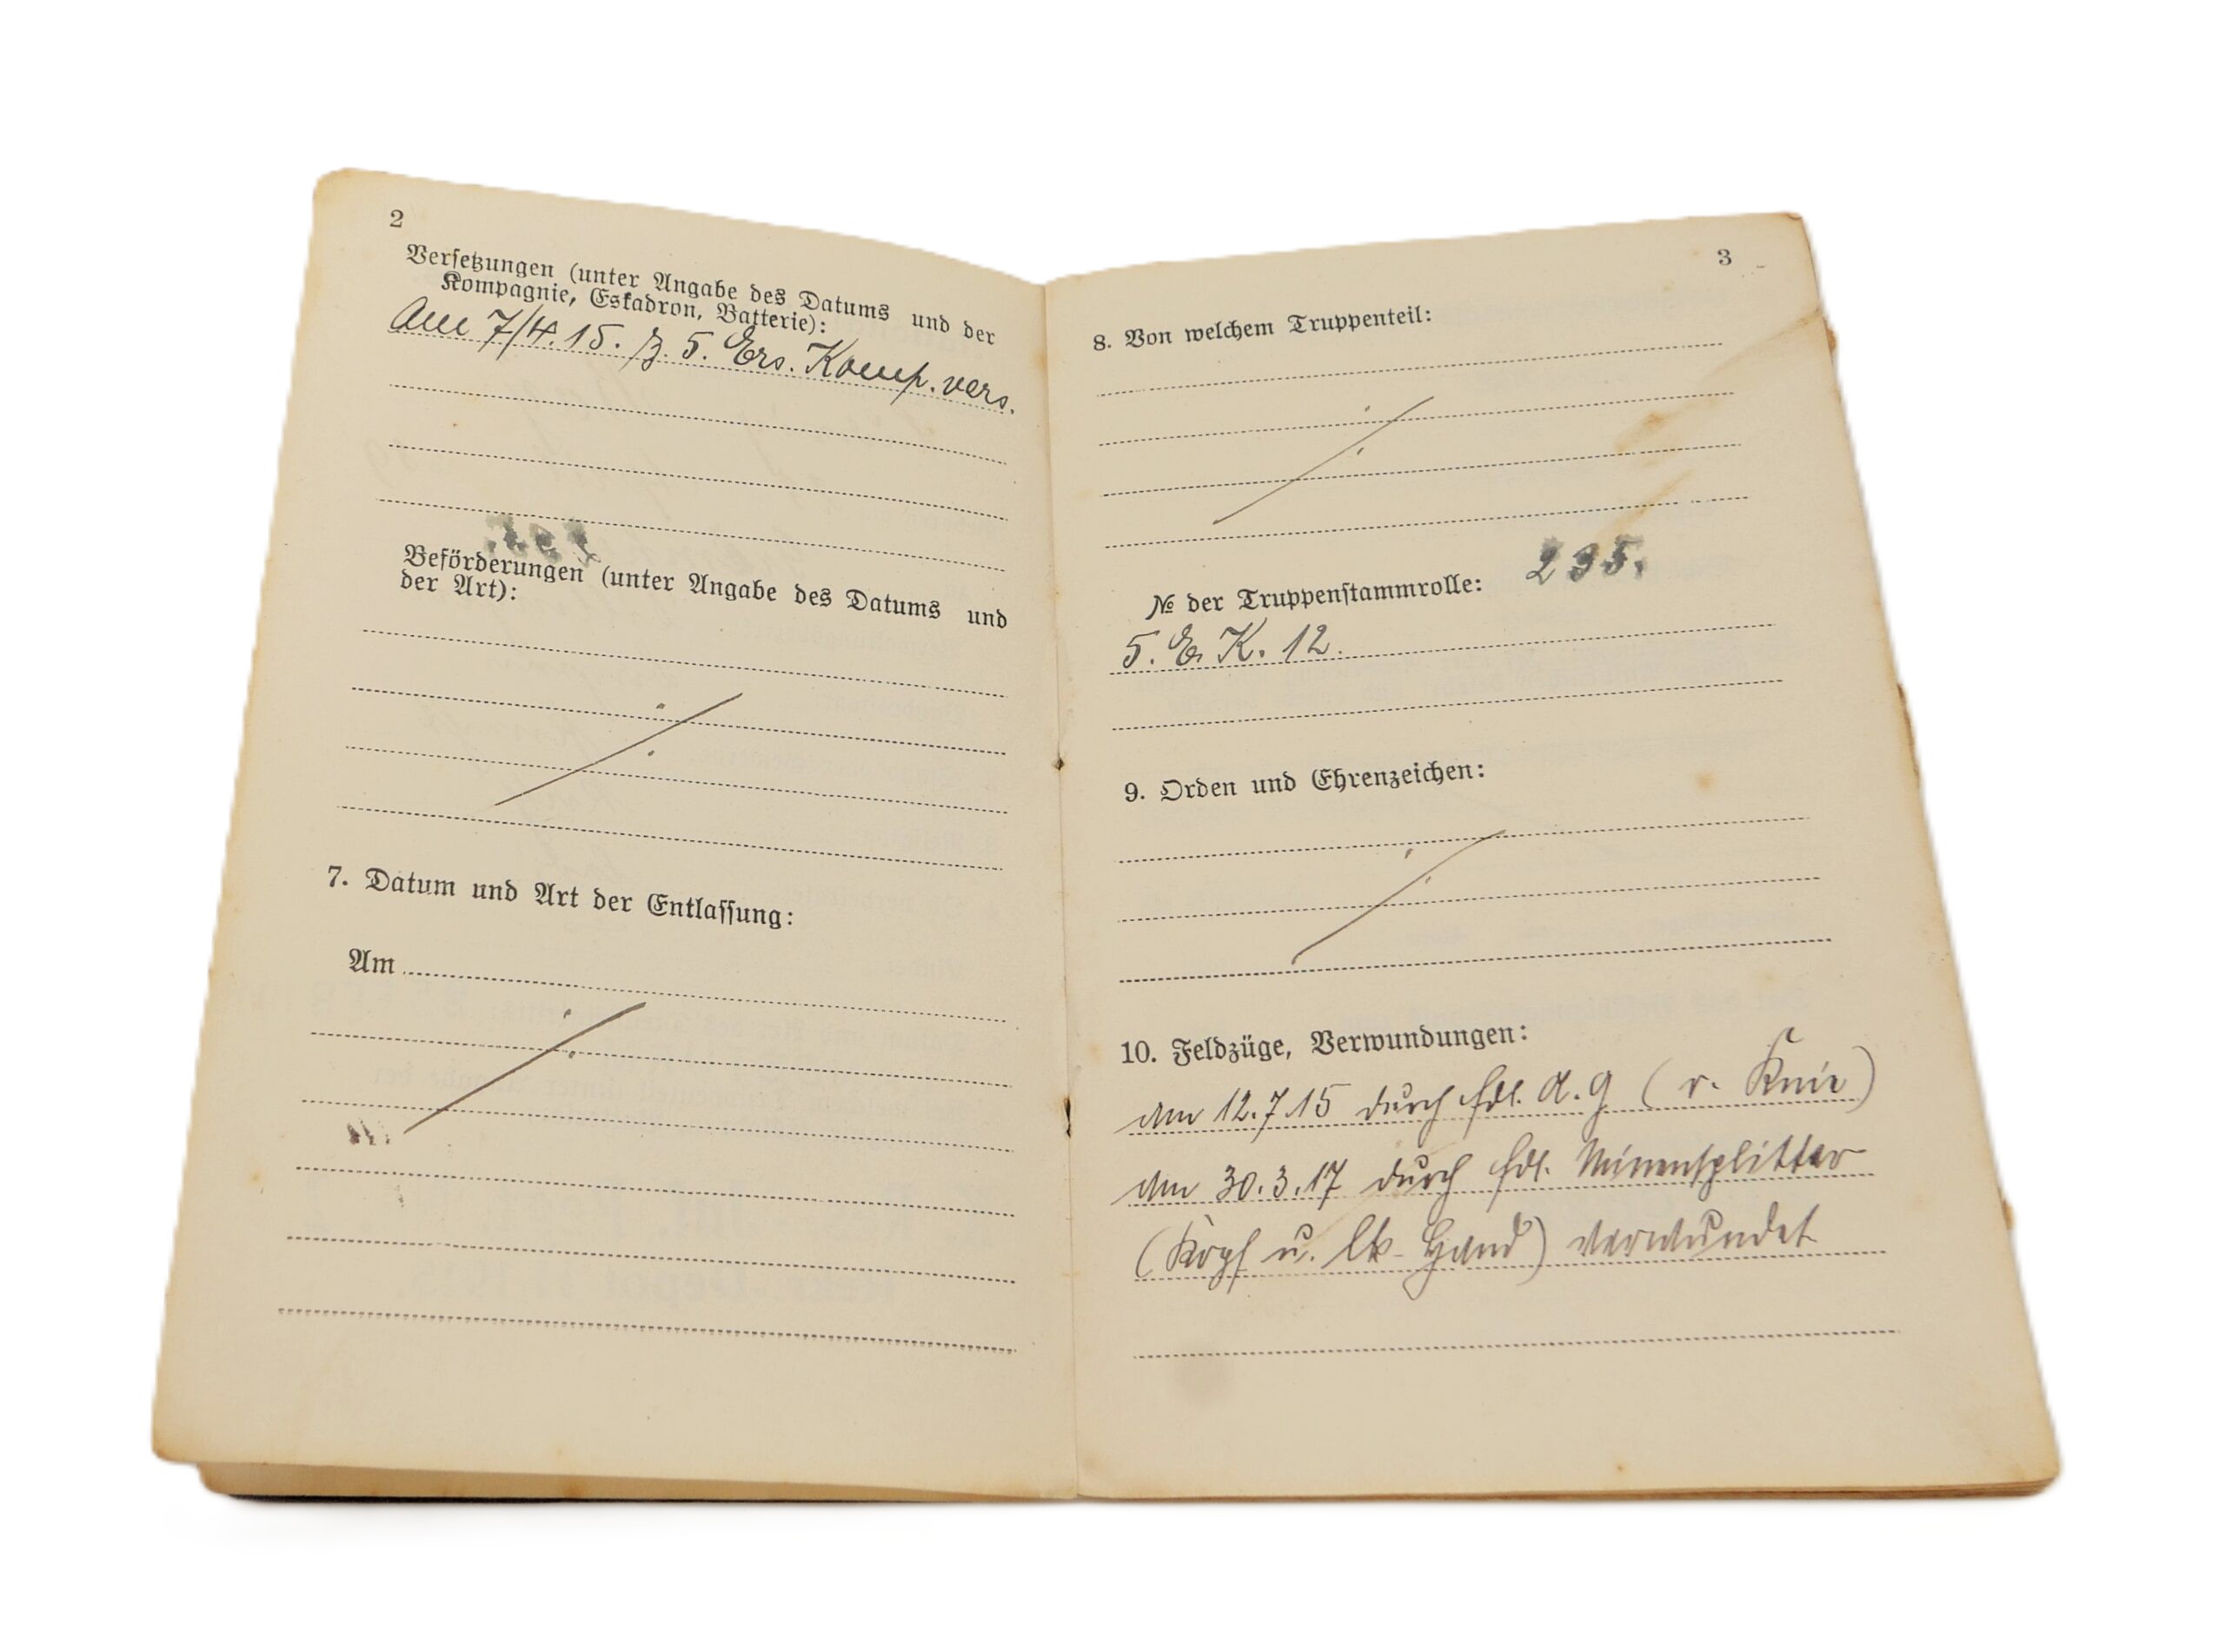 2
Versetzungen (unter Angabe des Datums und der
Kompagnie, Eskadron, Batterie):
Am 7/4. 15. z. 5. Ers. Komp. vers.
Beförderungen (unter Angabe des Datums und
der Art):
7. Datum und Art der Entlassung:
Am
3
8. Von welchem Truppenteil:
№ der Truppenstammrolle: 235.
5. E. K. 12.
9. Orden und Ehrenzeichen:
10. Feldzüge, Verwundungen:
Am 12.7.15 durch fdl. A.G (r. Knie)
Am 30.3.17 durch fdl. Minensplitter
(Kopf u. lk. Hand) verwundet